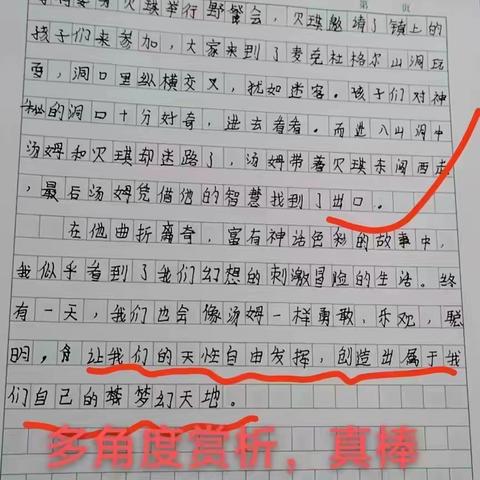 第 页
身贝琪举行野餐会,贝琪邀请了镇上的
孩子们来参加,大家来到了麦克杜格尔山洞玩
耍,洞口里纵横交叉,犹如迷宫。孩子们对神
秘的洞口十分好奇,进去看看。而进入山洞中
汤姆和贝琪却迷路了,汤姆带着贝琪东闯西走
,最后汤姆凭借他的智慧找到了出口。
在他曲折离奇,富有神话色彩的故事中,
我似乎看到了我们幻想的刺激冒险的生活。终
有一天,我们也会像汤姆一样勇敢、乐观、聪
明,让我们的天性自由发挥,创造出属于我
们自己的梦幻天地。
多角度赏析,真棒